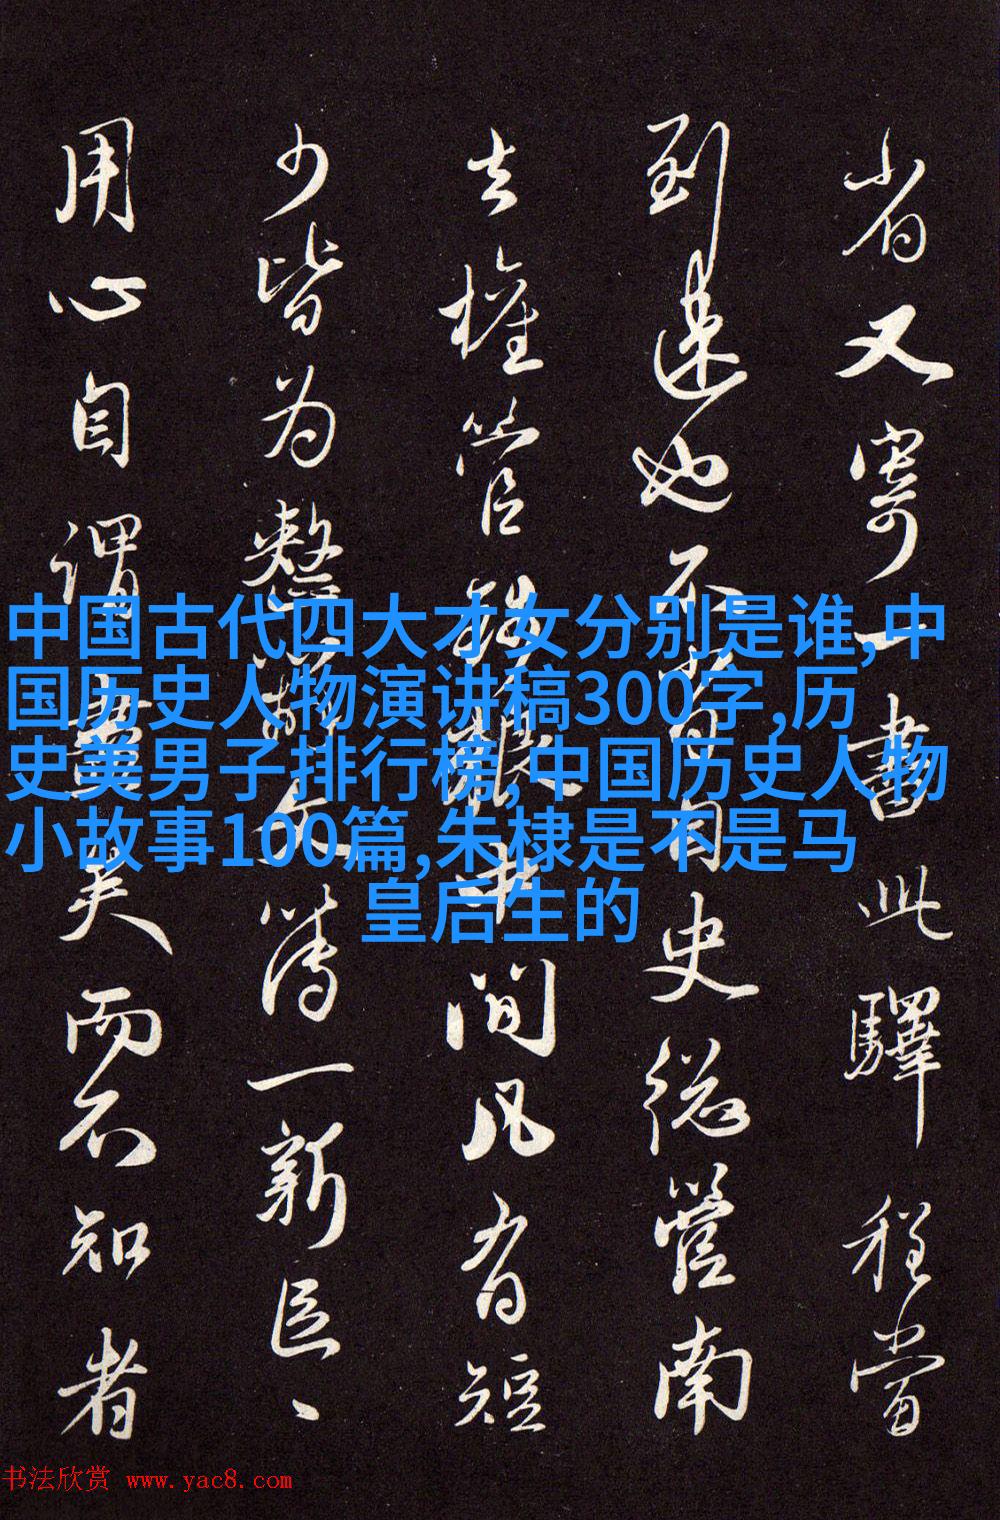 省又寄一書此驛程當
到達也不
史總管南
去權管
間凡有短
少皆为整
薄一新臣
用心自謂
而不知者
中国古代四大才女分别是谁,中
国历史人物演讲稿300字,历
史美男子排行榜,中国历史人物
小故事100篇,朱棣是不是马
皇后生的
书法欣赏 www.yac8.com